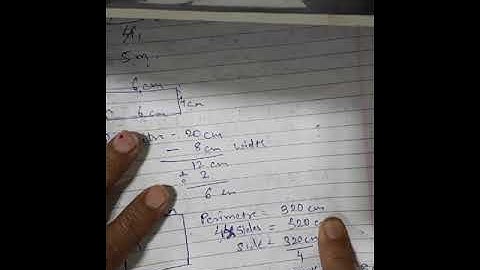 5m
6 cm
4 cm
6 cm
- 20 cm
- 8 cm width
12 cm
÷ 2
6 cm
Perimetre = 320 cm
sides = 320 c
side = 320 cm
4